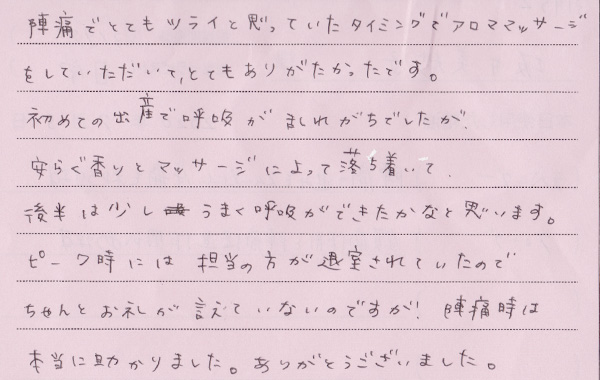 陣痛でとてもツライと思っていたタイミングでアロママッサージ
をしていただいて、とてもありがたかったです。
初めての出産で呼吸がみだれがちでしたが、
安らぐ香りとマッサージによって落ち着いて、
後半は少しうまく呼吸ができたかなと思います。
ピーク時には担当の方が退室されていたので
ちゃんとお礼が言えていないのですが! 陣痛時は
本当に助かりました。ありがとうございました。